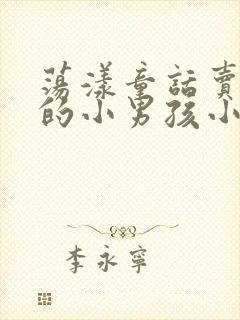 蕩漾童話賣
的小男孩小
李永寧